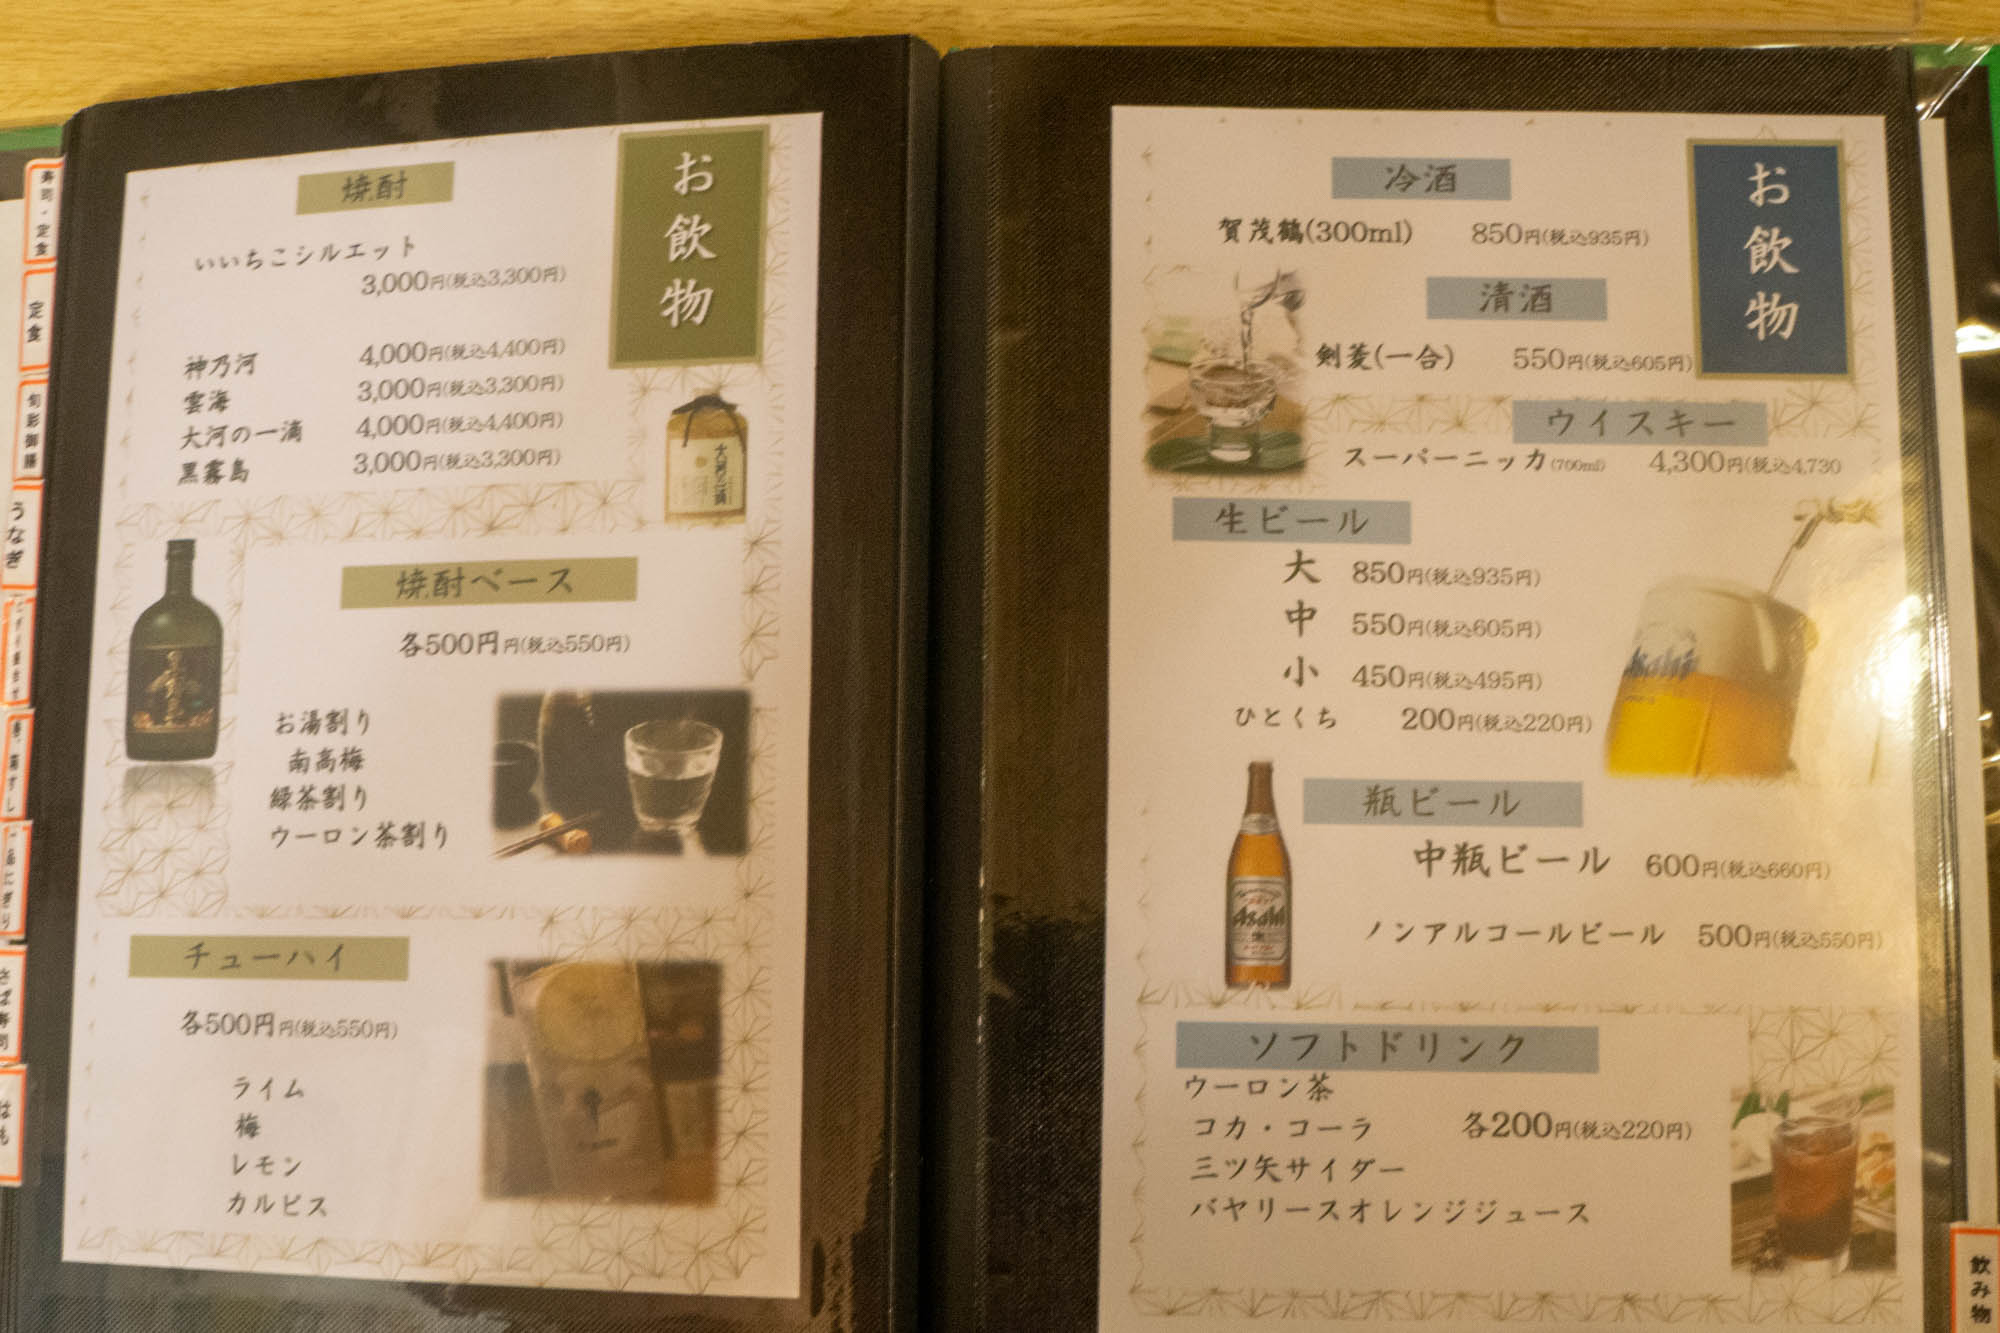 お飲物
焼酎
いいちこシルエット
3,000円(税込3,300円)
神乃河 4,000円(税込4,400円)
雲海 3,000円(税込3,300円)
大河の一滴 4,000円(税込4,400円)
黒霧島 3,000円(税込3,300円)
焼酎ベース
各500円円(税込550円)
お湯割り
南高梅
緑茶割り
ウーロン茶割り
チューハイ
各500円円(税込550円)
ライム
梅
レモン
カルピス
お飲物
冷酒
賀茂鶴(300ml) 850円(税込935円)
清酒
剣菱(一合) 550円(税込605円)
ウイスキー
スーパーニッカ(700ml) 4,300円(税込4,730
生ビール
大 850円(税込935円)
中 550円(税込605円)
小 450円(税込495円)
ひとくち 200円(税込220円)
Asahi
瓶ビール
中瓶ビール 600円(税込660円)
ノンアルコールビール 500円(税込550円)
Asahi
ソフトドリンク
ウーロン茶
コカ・コーラ 各200円(税込220円)
三ツ矢サイダー
バヤリースオレンジジュース
寿司・定食
定食
旬彩御膳
うなぎ
さば寿司
はも
飲み物
大河の一滴